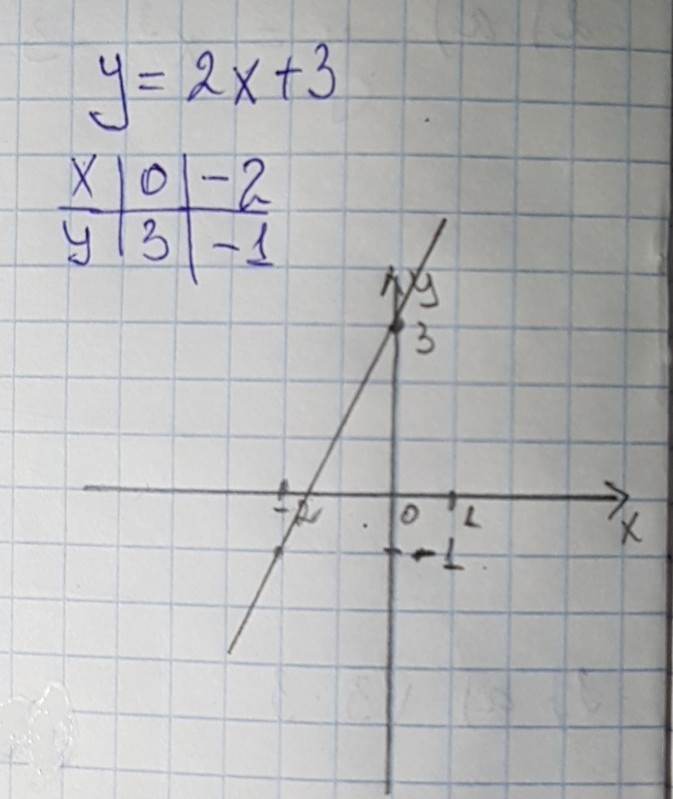 y = 2x+3
x | 0 | -2
y | 3 | -1
y
3
-2 0 1
x
-1